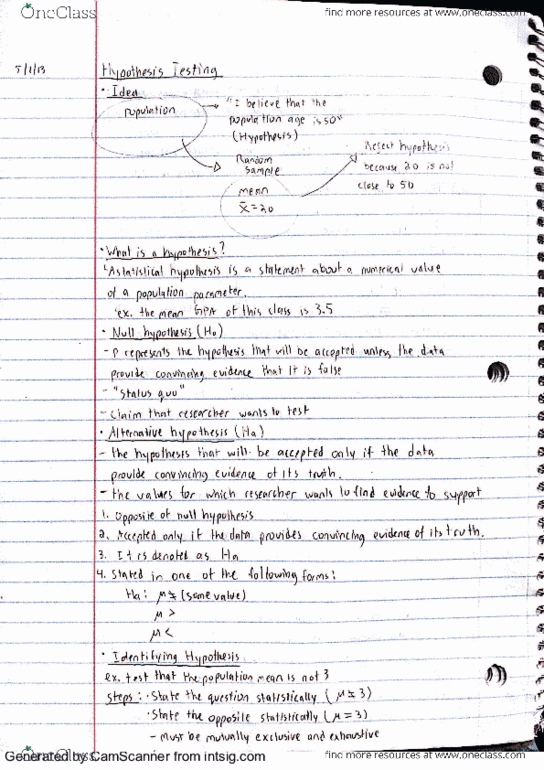 OneClass
find more resources at www.oneclass.com
5/1/13
Hypothesis Testing
• Idea
population
"I believe that the
population age is 50"
(Hypothesis)
Random
Sample
mean
x̄ = 20
Reject hypothesis
because 20 is not
close to 50
• What is a hypothesis?
A statistical hypothesis is a statement about a numerical value
of a population parameter.
ex. the mean GPA of this class is 3.5
• Null hypothesis (H₀)
- represents the hypothesis that will be accepted unless the data
provide convincing evidence that it is false
- "status quo"
- Claim that researcher wants to test
• Alternative hypothesis (Ha)
- the hypothesis that will be accepted only if the data
provide convincing evidence of its truth.
- the values for which researcher wants to find evidence to support
1. Opposite of null hypothesis
2. Accepted only if the data provides convincing evidence of its truth.
3. It is denoted as Ha
4. Stated in one of the following forms:
Ha: μ ≠ (some value)
μ >
μ <
• Identifying Hypothesis
ex. test that the population mean is not 3
steps: • State the question statistically (μ ≠ 3)
• State the opposite statistically (μ = 3)
- Must be mutually exclusive and exhaustive
OneClass
Generated by CamScanner from intsig.com
find more resources at www.oneclass.com